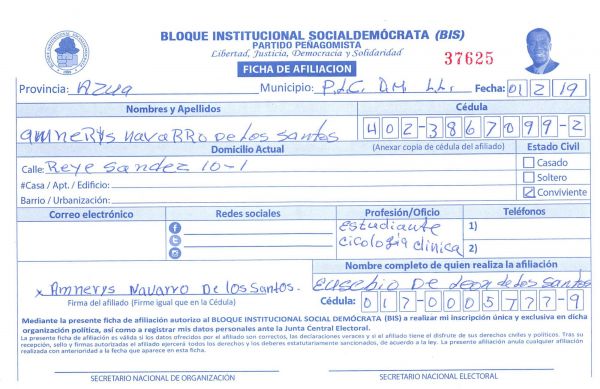 BLOQUE INSTITUCIONAL SOCIALDEMÓCRATA (BIS)
PARTIDO PEÑAGOMISTA
Libertad, Justicia, Democracia y Solidaridad
37625
FICHA DE AFILIACION
Provincia: Azua Municipio: P.L.C. D.M. L.L. Fecha: 01 2 19
Nombres y Apellidos Cédula
Amnerys Navarro De Los Santos 402-3867099-2
Domicilio Actual (Anexar copia de cédula del afiliado) Estado Civil
Calle: Reye Sandez 10-1 Casado
#Casa / Apt. / Edificio: Soltero
Barrio / Urbanización: Conviviente
Correo electrónico Redes sociales Profesión/Oficio Teléfonos
estudiante 1)
cicologia clinica 2)
Nombre completo de quien realiza la afiliación
x Amnerys Navarro De los Santos. Eusebio De Leon de Los Santos
Firma del afiliado (Firme igual que en la Cédula) Cédula: 017-0005777-9
Mediante la presente ficha de afiliación autorizo al BLOQUE INSTITUCIONAL SOCIAL DEMÓCRATA (BIS) a realizar mi inscripción única y exclusiva en dicha
organización política, así como a registrar mis datos personales ante la Junta Central Electoral.
La presente ficha de afiliación es válida si los datos ofrecidos por el afiliado son correctos, las declaraciones veraces y si el afiliado tiene el disfrute de sus derechos civiles y políticos. Tras su
recepción, sello y firmas autorizadas el afiliado ejercerá todos los derechos y los deberes estatutariamente sancionados, de acuerdo a la ley. La presente afiliación anula cualquier afiliación
realizada con anterioridad a la fecha que aparece en esta ficha.
SECRETARIO NACIONAL DE ORGANIZACIÓN SECRETARIO NACIONAL ELECTORAL